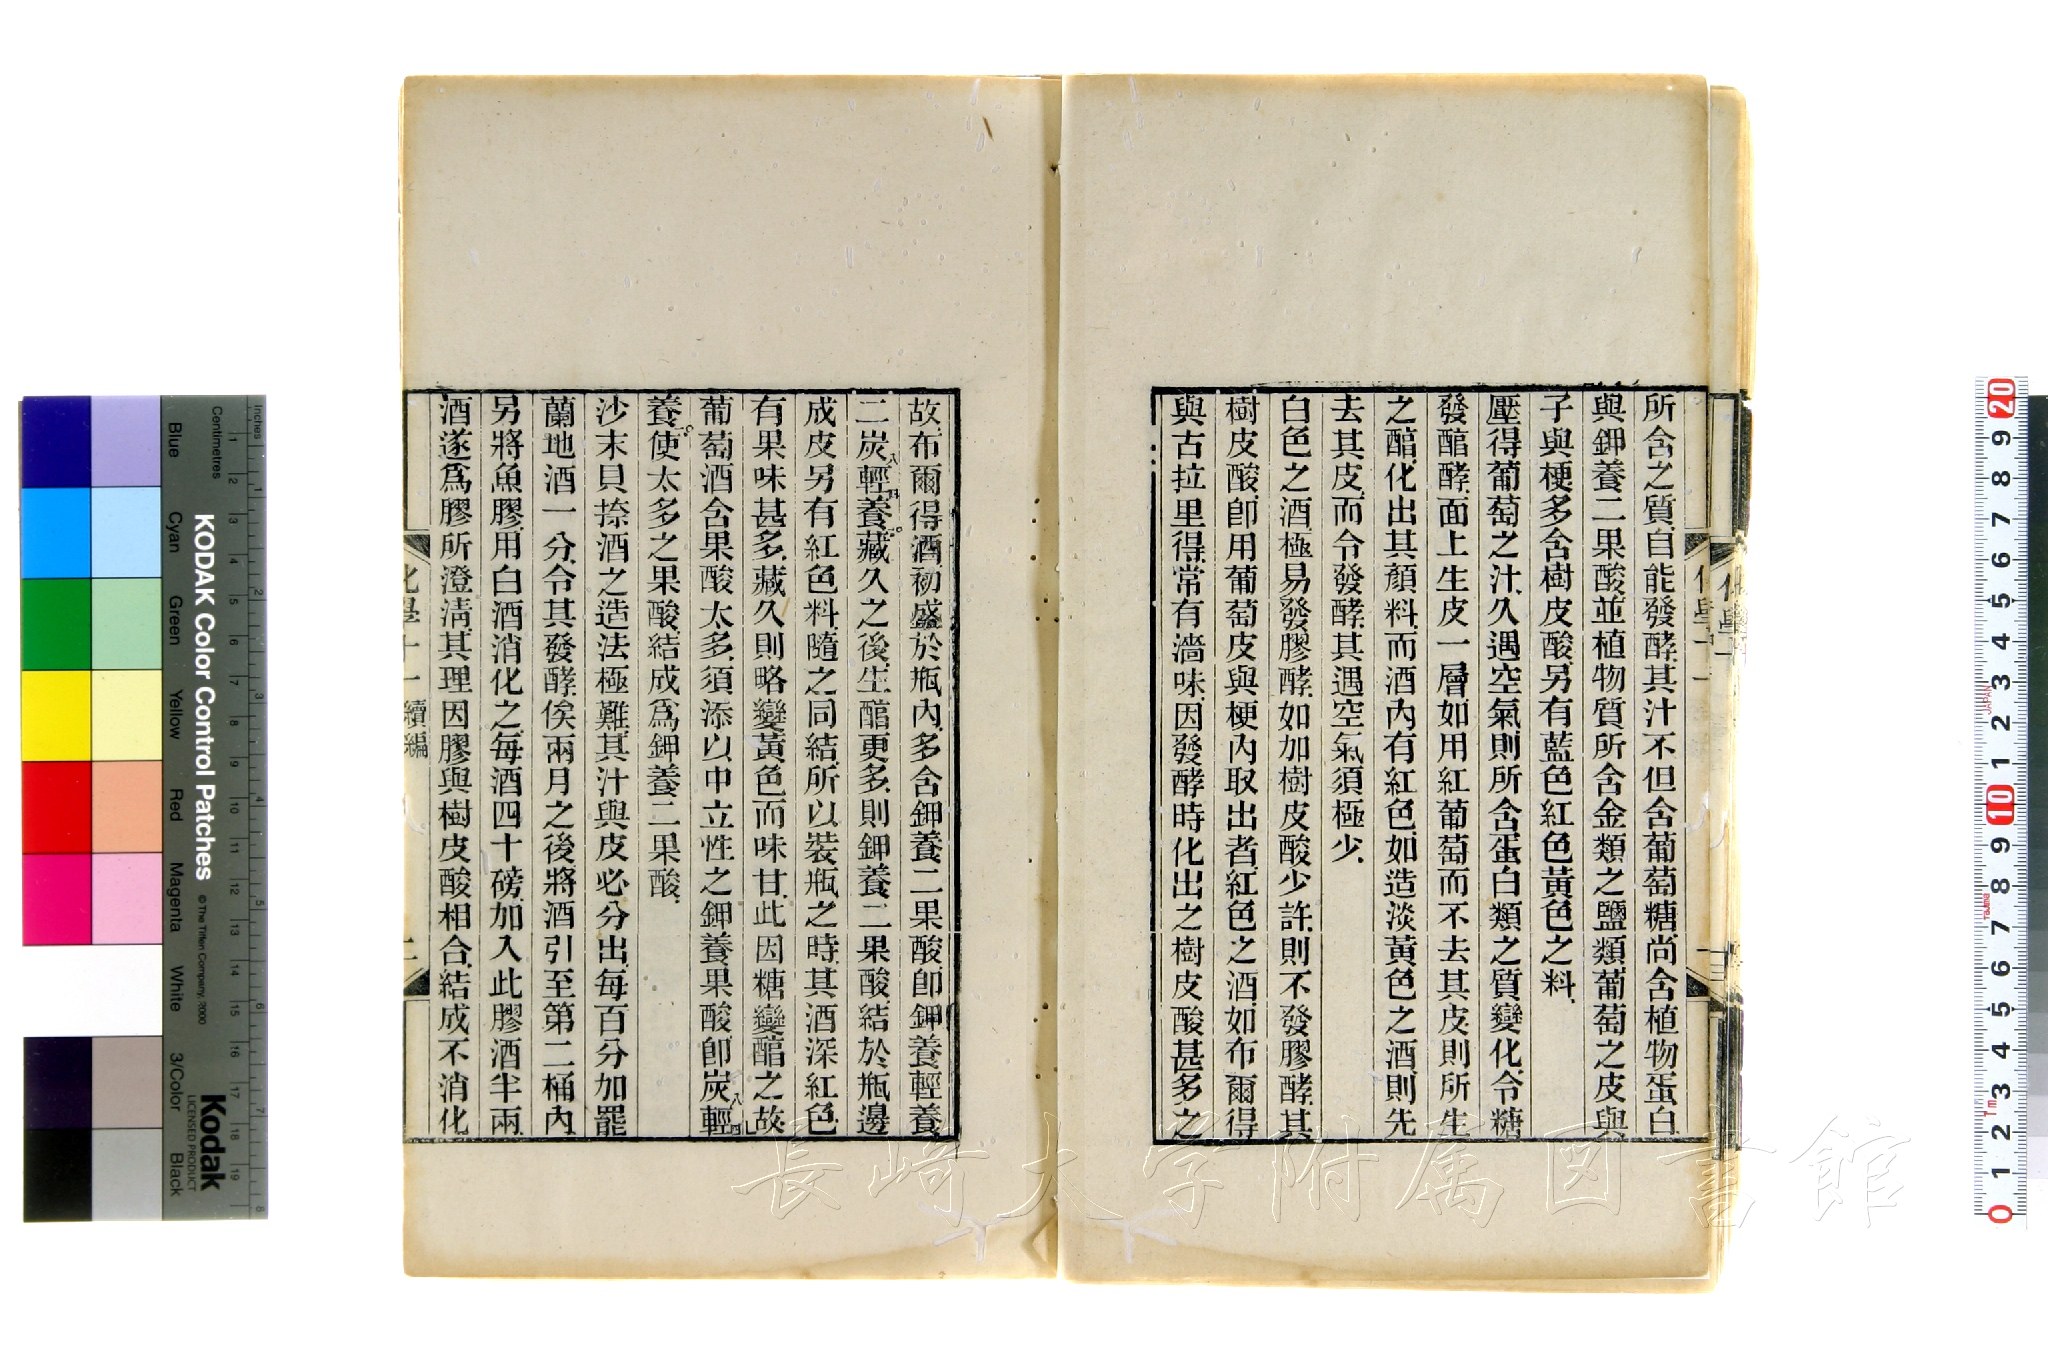 所含之質、自能發酵、其汁不但含葡萄糖、尚含植物蛋白、
與鉀養二果酸、並植物質所含金類之鹽類、葡萄之皮與
子與梗、多含樹皮酸、另有藍色紅色黃色之料、
壓得葡萄之汁、久遇空氣、則所含蛋白類之質變化、令糖
發醕酵、面上生皮一層、如用紅葡萄而不去其皮、則所生
之醕、化出其顏料、而酒內有紅色、如造淡黃色之酒、則先
去其皮、而令發酵、其遇空氣須極少、
白色之酒、極易發膠酵、如加樹皮酸少許、則不發膠酵、其
樹皮酸、卽用葡萄皮與梗內取出者、紅色之酒、如布爾得
與古拉里得、常有濇味、因發酵時化出之樹皮酸甚多之
故、布爾得酒、初盛於瓶內、多含鉀養二果酸、卽鉀養輕養
二炭八輕四養一○、藏久之後、生醕更多、則鉀養二果酸結於瓶邊
成皮、另有紅色料隨之同結、所以裝瓶之時、其酒深紅色、
有果味甚多、藏久則略變黃色而味甘、此因糖變醕之故、
葡萄酒含果酸太多、須添以中立性之鉀養果酸、卽炭八輕四
養一○、使太多之果酸、結成爲鉀養二果酸、
沙末貝捺酒之造法極難、其汁與皮必分出、每百分加罷
蘭地酒一分、令其發酵、俟兩月之後、將酒引至第二桶內、
另將魚膠、用白酒消化之、每酒四十磅、加入此膠酒半兩、
酒遂爲膠所澄淸、其理因膠與樹皮酸相合、結成不消化
化學十一 續編
二
長崎大学附属図書館
KODAK Color Control Patches
© The Tiffen Company, 2000
Kodak
LICENSED PRODUCT
Centimetres
Inches
Blue
Cyan
Green
Yellow
Red
Magenta
White
3/Color
Black